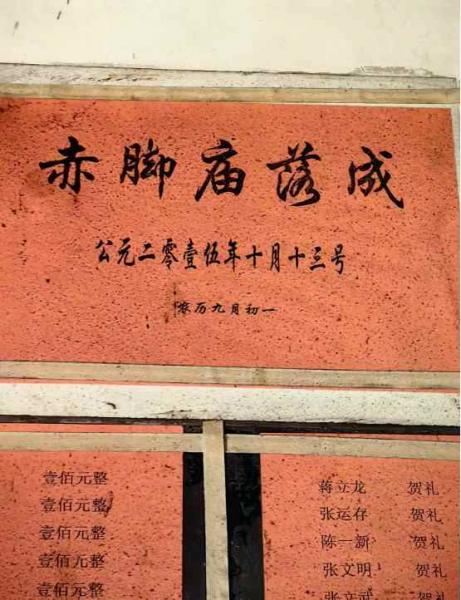 赤脚庙落成
公元二零壹伍年十月十三号
农历九月初一
壹佰元整
壹佰元整
壹佰元整
壹佰元整
壹佰元整
蒋立龙 贺礼
张运存 贺礼
陈一新 贺礼
张文明 贺礼
张立武 贺礼